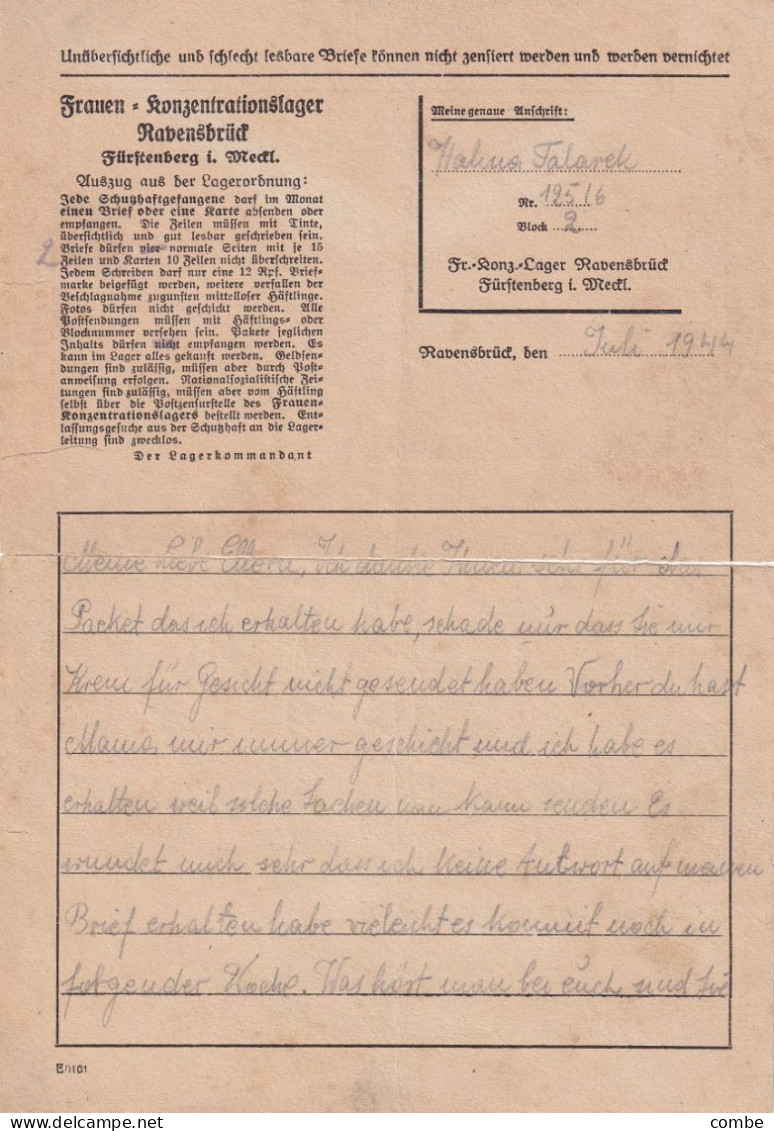 Unübersichtliche und schlecht lesbare Briefe können nicht zensiert werden und werden vernichtet
Frauen - Konzentrationslager
Ravensbrück
Fürstenberg i. Meckl.
Auszug aus der Lagerordnung:
Jede Schutzhaftgefangene darf im Monat
einen Brief oder eine Karte absenden oder
empfangen. Die Zeilen müssen mit Tinte,
übersichtlich und gut lesbar geschrieben sein.
2
Briefe dürfen vier normale Seiten mit je 15
Zeilen und Karten 10 Zeilen nicht überschreiten.
Jedem Schreiben darf nur eine 12 Rpf. Brief-
marke beigefügt werden, weitere verfallen der
Beschlagnahme zugunsten mittelloser Häftlinge.
Fotos dürfen nicht geschickt werden. Alle
Postsendungen müssen mit Häftlings- oder
Blocknummer versehen sein. Pakete jeglichen
Inhalts dürfen nicht empfangen werden. Es
kann im Lager alles gekauft werden. Geldsen-
dungen sind zulässig, müssen aber durch Post-
anweisung erfolgen. Nationalsozialistische Zei-
tungen sind zulässig, müssen aber vom Häftling
selbst über die Postzensurstelle des Frauen-
Konzentrationslagers bestellt werden. Ent-
lassungsgesuche aus der Schutzhaft an die Lager-
leitung sind zwecklos.
Der Lagerkommandant
Meine genaue Anschrift:
Halina Talarek
Nr. 125/6
Block 2
Fr.-Konz.-Lager Ravensbrück
Fürstenberg i. Meckl.
Ravensbrück, den Juli 1944
Meine Liebe Eltern, Ich danke Ihnen sehr für das
Packet das ich erhalten habe, schade nur dass Sie mir
Krem für Gesicht nicht gesendet haben Vorher du hast
Mama mir immer geschicht und ich habe es
erhalten weil solche Sachen man kann senden Es
wundet mich sehr dass ich keine Antwort auf meinen
Brief erhalten habe vieleicht es kommt noch in
folgender Woche. Was hört man bei euch sind Sie
E/0101
combe